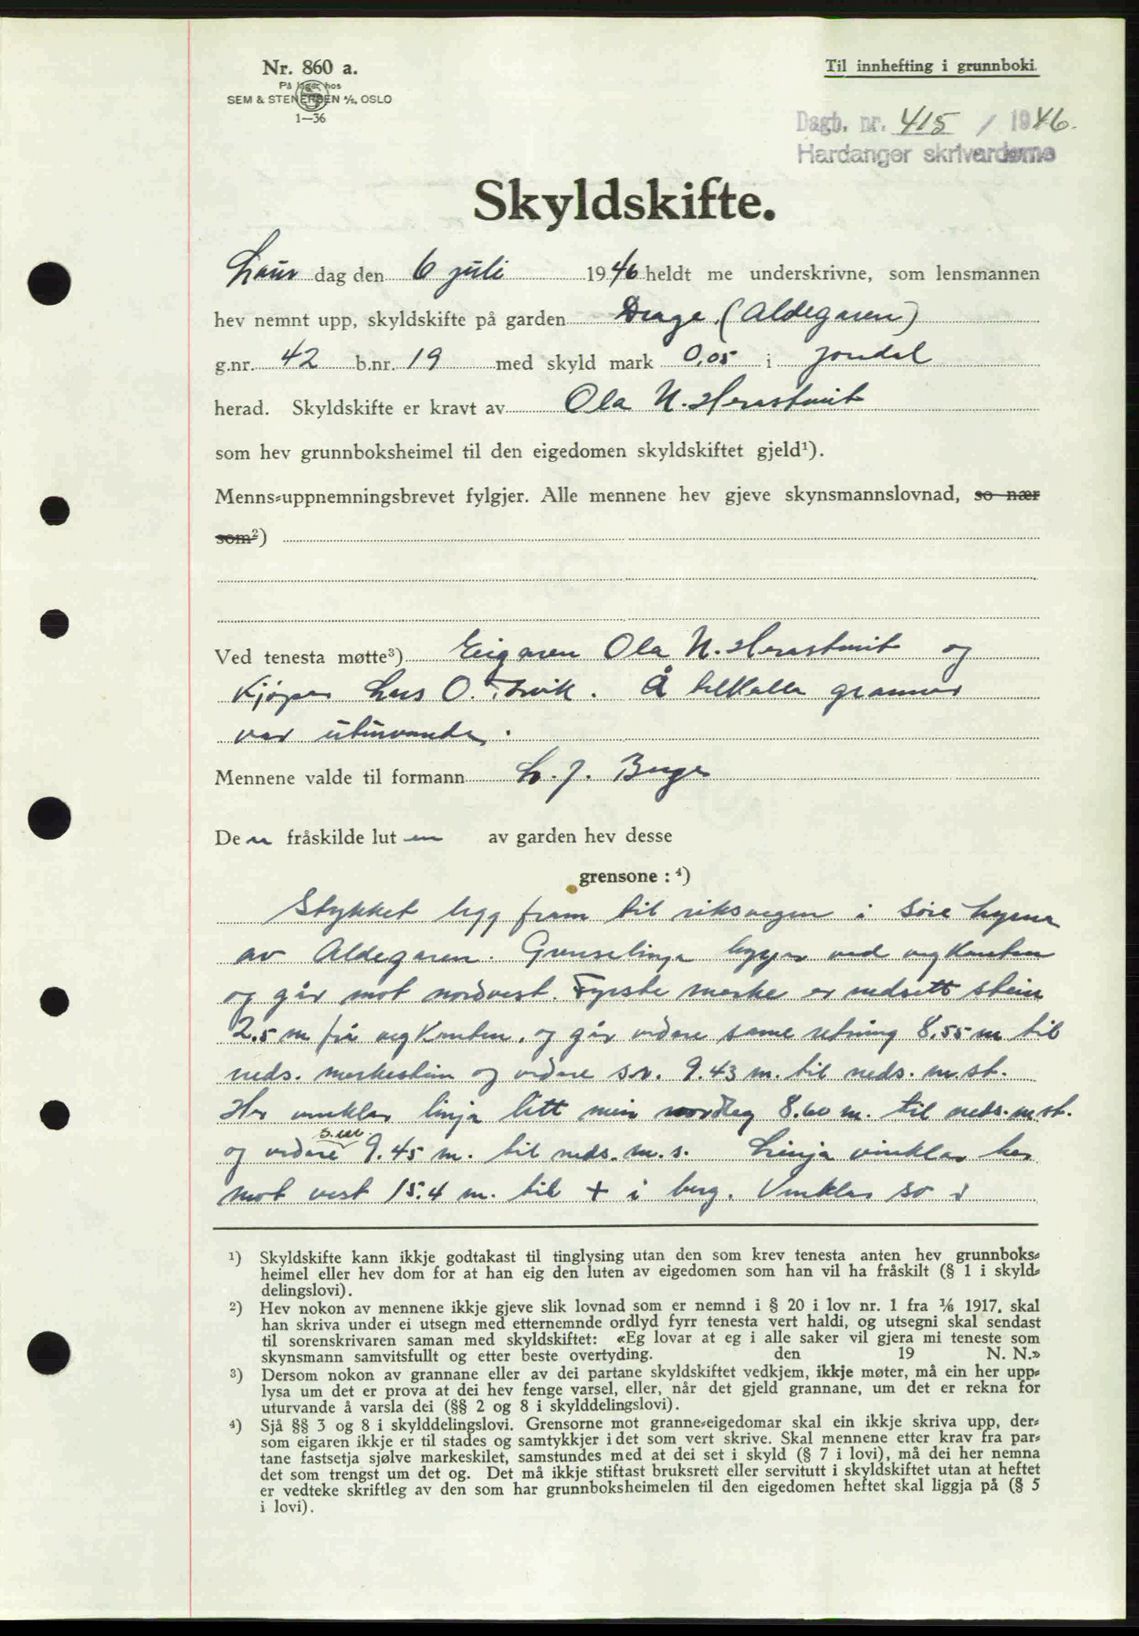 Nr. 860 a.
På lager hos
SEM & STENERSEN A/S, OSLO
1—36
Til innhefting i grunnboki.
Dagb. nr. 415 / 1946.
Hardanger skrivardøme
Skyldskifte.
Laur dag den 6 juli 1946 heldt me underskrivne, som lensmannen
hev nemnt upp, skyldskifte på garden Drage, (Aldegaren)
g.nr. 42 b.nr. 19 med skyld mark 0,05 i Jondal
herad. Skyldskifte er kravt av Ola N. Herastveit
som hev grunnboksheimel til den eigedomen skyldskiftet gjeld¹).
Menns-uppnemningsbrevet fylgjer. Alle mennene hev gjeve skynsmannslovnad, so nær
som²)
Ved tenesta møtte³) Eigaren Ola N. Herastveit og
Kjøpar Lars O. . Å tilkalla grannar
var uturvande.
Mennene valde til formann L. J.
De n fråskilde lut en av garden hev desse
grensone : ⁴)
Stykket ligg fram til riksvegen i søre hyrna
av Aldegaren. Grenselinja byrjar ved vegkanten
og går mot nordvest. Fyrste merke er nedsett stein
2.5 m frå vegkanten, og går vidare same retning 8.55 m til
neds. merkestein og vidare s.r. 9.43 m. til neds. m.st.
Her vinklar linja litt meir nordleg 8.60 m. til neds. m.st.
og vidare s.m. 9.45 m. til neds. m.s. Linja vinklar her
mot vest 15.4 m. til + i berg. Vinklar so i
¹) Skyldskifte kann ikkje godtakast til tinglysing utan den som krev tenesta anten hev grunnboks-
heimel eller hev dom for at han eig den luten av eigedomen som han vil ha fråskilt (§ 1 i skyld-
delingslovi).
²) Hev nokon av mennene ikkje gjeve slik lovnad som er nemnd i § 20 i lov nr. 1 fra ⅙ 1917, skal
han skriva under ei utsegn med etternemnde ordlyd fyrr tenesta vert haldi, og utsegni skal sendast
til sorenskrivaren saman med skyldskiftet: «Eg lovar at eg i alle saker vil gjera mi teneste som
skynsmann samvitsfullt og etter beste overtyding. den 19 N. N.»
³) Dersom nokon av grannane eller av dei partane skyldskiftet vedkjem, ikkje møter, må ein her upp-
lysa um det er prova at dei hev fenge varsel, eller, når det gjeld grannane, um det er rekna for
uturvande å varsla dei (§§ 2 og 8 i skylddelingslovi).
⁴) Sjå §§ 3 og 8 i skylddelingslovi. Grensorne mot granne-eigedomar skal ein ikkje skriva upp, der-
som eigaren ikkje er til stades og samtykkjer i det som vert skrive. Skal mennene etter krav fra par-
tane fastsetja sjølve markeskilet, samstundes med at dei set i skyld (§ 7 i lovi), må dei her nemna
det som trengst um det og. Det må ikkje stiftast bruksrett eller servitutt i skyldskiftet utan at heftet
er vedteke skriftleg av den som har grunnboksheimelen til den eigedomen heftet skal liggja på (§ 5
i lovi).